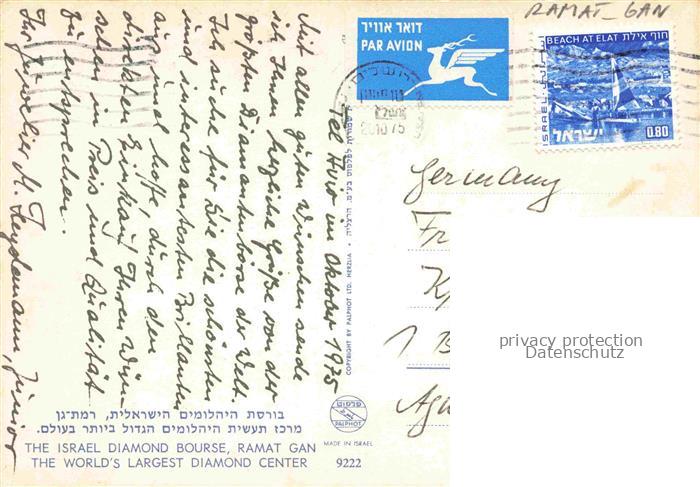 RAMAT-GAN
דואר אוויר
PAR AVION
חוף אילת
BEACH AT ELAT
ISRAEL
ישראל
0.80
20.10 75
Tel Aviv im Oktober 1975
Mit allen guten Wünschen sende
ich Ihnen herzliche Grüße von der
größten Diamantenbörse der Welt.
Ich suche für Sie die schönsten
und interessantesten Brillanten
aus und hoffe, durch den
direkten Einkauf Ihren Wün-
schen in Preis und Qualität
zu entsprechen.
Ihr Juwelier H. Heydemann, Junior
Germany
Fr
K
1 B
Ag
privacy protection
Datenschutz
COPYRIGHT BY PALPHOT LTD. HERZLIA
פלפוט
PALPHOT
MADE IN ISRAEL
בורסת היהלומים הישראלית, רמת־גן
מרכז תעשית היהלומים הגדול ביותר בעולם.
THE ISRAEL DIAMOND BOURSE, RAMAT GAN
THE WORLD'S LARGEST DIAMOND CENTER
9222